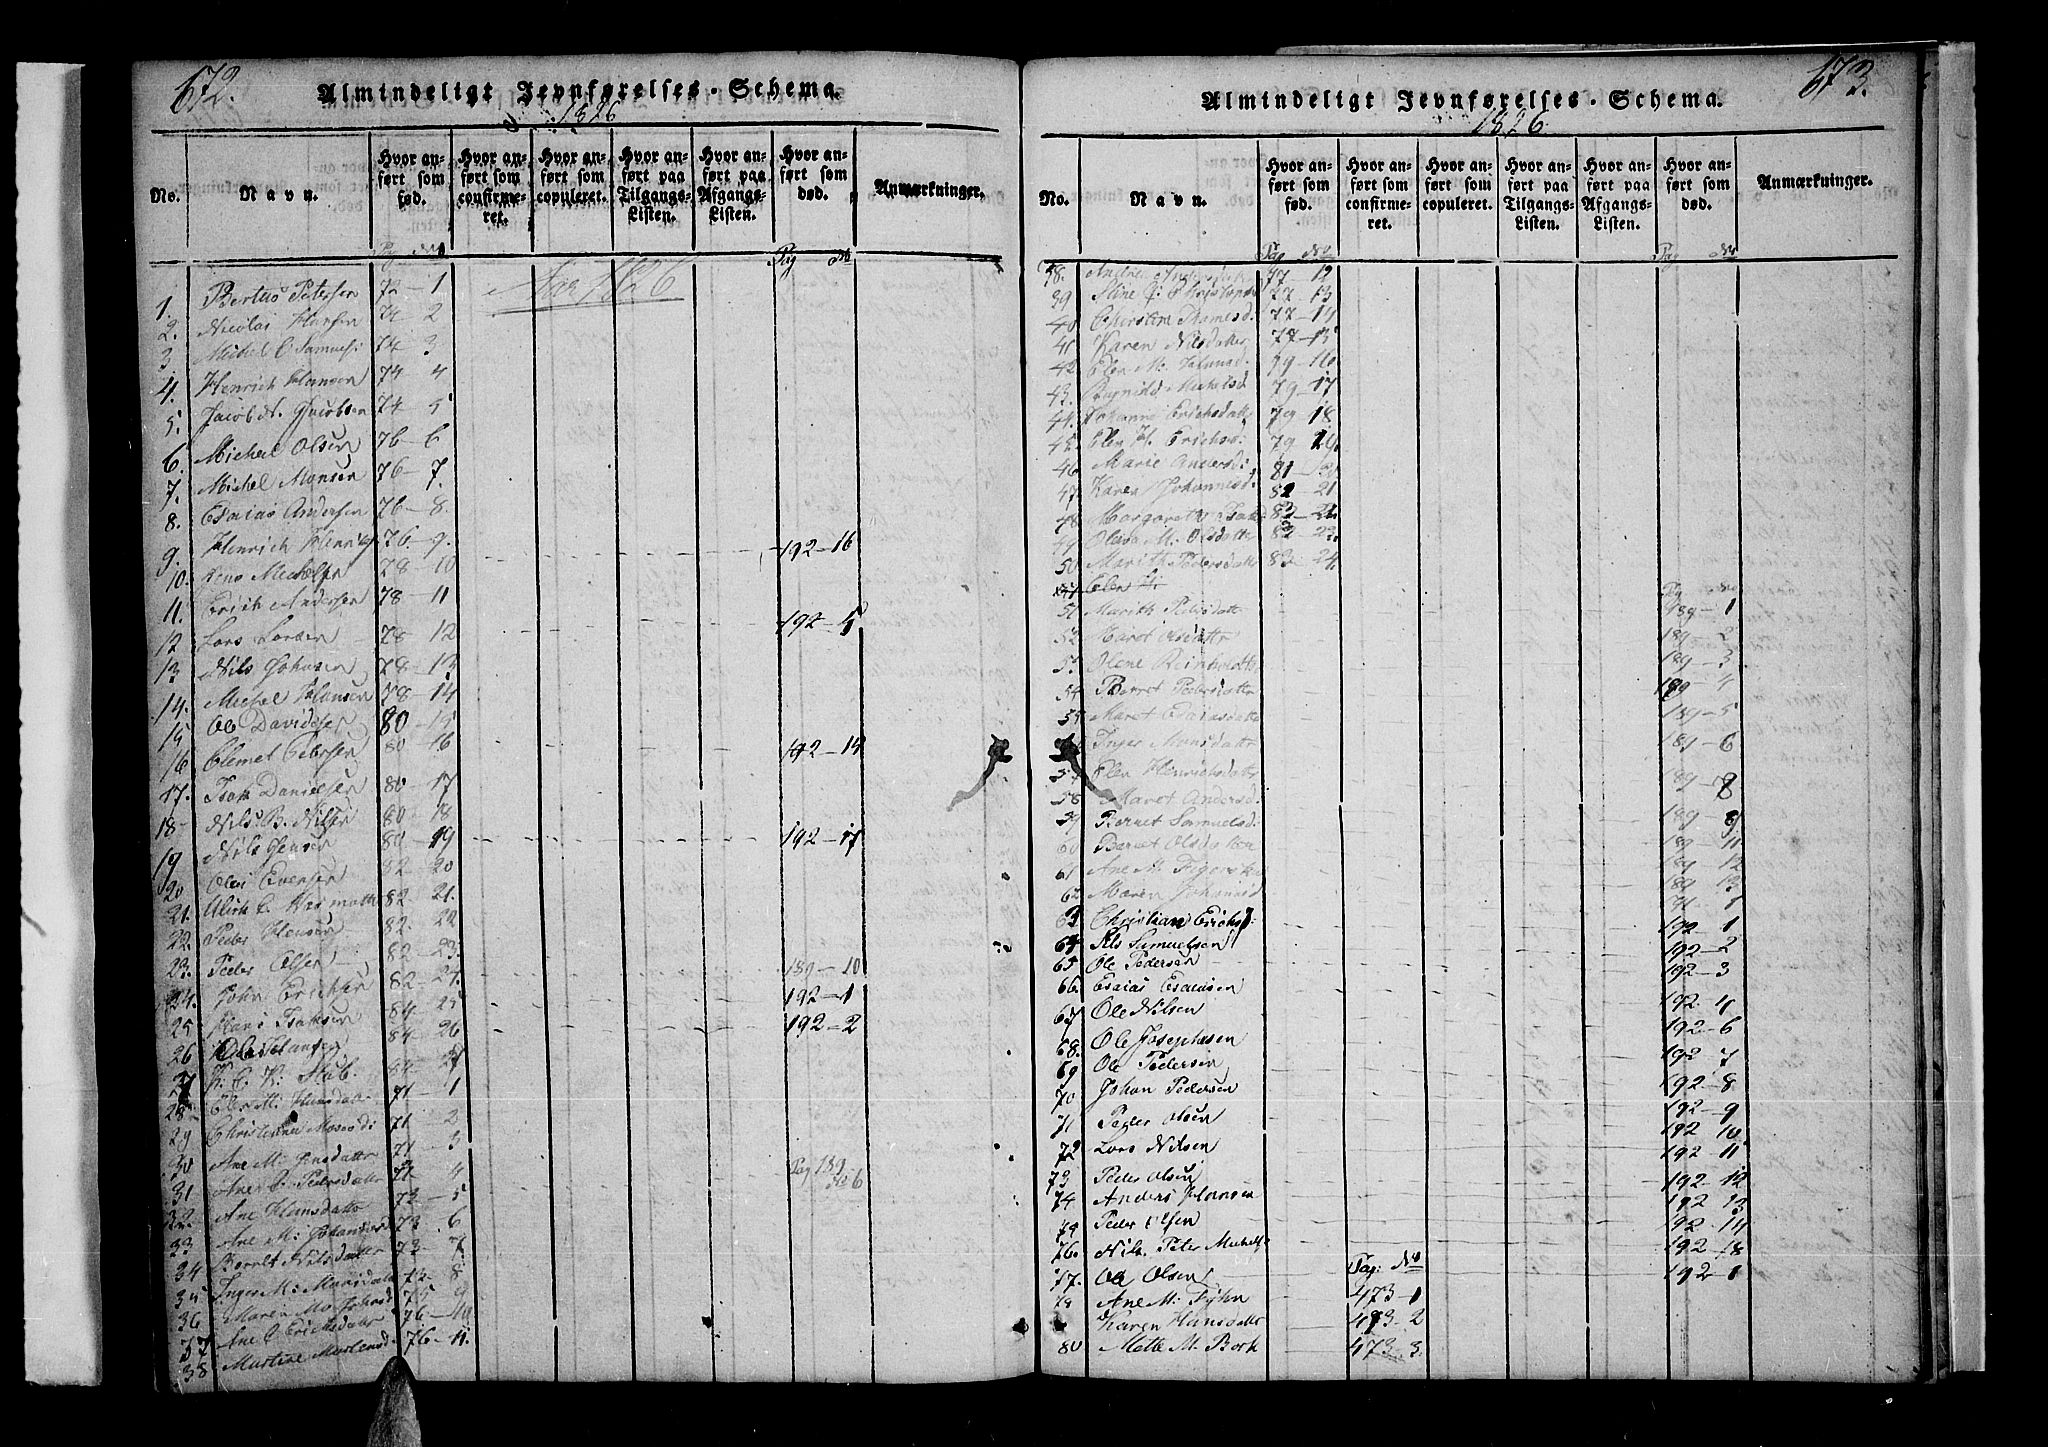 672.
Almindeligt Jevnførelses-Schema.
1826
No.
Navn.
Hvor anført som fød.
Hvor anført som confirmeret.
Hvor anført som copuleret.
Hvor anført paa Tilgangs-Listen.
Hvor anført paa Afgangs-Listen.
Hvor anført som død.
Anmærkninger.
Pag No Pag No
1. Bertus Petersen 72 - 1 Aar 1826
2. Nicolai Hansen 74 2
3. Michel C Samuels: 74 - 3
4. Henrich Hansen 74 - 4
5. Jacob A. Jacobsen 74 - 5
6. Michel Olsen 76 - 6
7. Michel Monsen 76 - 7.
8. Esaias Andersen 76 - 8.
9. Henrich Henrik 76 - 9. 192 - 16
10. Michelsen 78 - 10
11. Erich Andersen 78 - 11
12 Lars Larsen 78 - 12 192 - 5
13 Nils Johnsen 78 - 13
14. Michel Johansen 78 - 14
15 Ole Davidsen 80 - 15
16 Clemet Pedersen 80 - 16 192 - 15
17. Isak Danielsen 80 - 17
18 Nils B. Nilsen 80 - 18
19 Nils Jensen 80 - 19 192 - 17
20 Ole Evensen 82 - 20
21. Ulrik C. 82 - 21.
22. Peder Hansen 82. 22
23. Peder Olsen 82 - 23.
24. John Erichsen 82 - 24. 189 - 10
25 Hans Isaksen 84 - 25 192 - 1
26 Ole Hansen 84 - 26 192 - 2
27 84 - 27
28 Elen M: Hansdatter 71 - 1
29 Christiana 71 2
30 Ane M. Jensdatter 71 - 3
31 Ane Pedersdatter 71 - 4 Pag 189 No 6
32. Ane Hansdatter 73 - 5
33 Ane M: Johannesd 73 - 6
34 Beret Nilsdatter 73 - 7
35 Inger M: Monsdatter 73 - 8
36 Maren 75 9
37 Ane C Erichsdatter 76 - 10
38 Martine Mortensd. 76 - 11.
673.
Almindeligt Jevnførelses-Schema.
1826
No.
Navn.
Hvor anført som fød.
Hvor anført som confirmeret.
Hvor anført som copuleret.
Hvor anført paa Tilgangs-Listen.
Hvor anført paa Afgangs-Listen.
Hvor anført som død.
Anmærkninger.
Pag No Pag No
38. 77 - 12
39 Stine 77 - 13
40 Cherstine Thomesd. 77 - 14
41 Karen Nilsdatter 77 - 15
42. Elen M. 79 - 16
43. Ragnild Michelsd 79 - 17
44. Johanne Erichsdatter 79 18
45. Elen H. Erichs: 79
46 Marie Andersd: 81
47. Karen Johannesd. 82 - 21
48 Margareth 82 - 22.
49 Olava M. Olsdatter 82 - 23.
50 Marith Pedersdatter 83 - 24.
Elen
51 Marith Pedersdatter 189 - 1
52. Maret Olsdatter 189 - 2
53. Olene Reinholdtd 189 - 3
54 Beret Pedersdatter 189 - 4
55 Maret Esaiasdatter 189 - 5
Inger Monsdatter 189 - 6
57 Elen Henrichsdatter 189
58 Maret Andersd. 8
59 Berret Samuelsd: 189 9
60 Beret Olsdatter 189 - 11
61 Ane M. 189 12
62 Maren Johannesd 189 13
63 Christian Erichs: 192 1
64 Nils Samuelsen 192 - 2
65 Ole Pedersen 192 - 3
66. Esaias Esaiasen
67 Ole Nilsen 192 - 4
68. Ole Josephesen 192 - 6
69 Ole Pedersen 192 7
70 Johan Pedersen 192 - 8
71 Peder Olsen 192 - 9
72 Lars Nilsen 192 10
73 Peder Olsen 192 - 11
74 Anders Johansen 192 - 12
75 Peder Olsen 192 13
76. Nils Peter Michels: 192 - 14
77. Ole Olsen Pag: No 192 - 18
78 Ane M: Fyhn 473 - 1 192 1
Karen Hansdatter 473 - 2
80 Mette M. Bork 473 - 3.